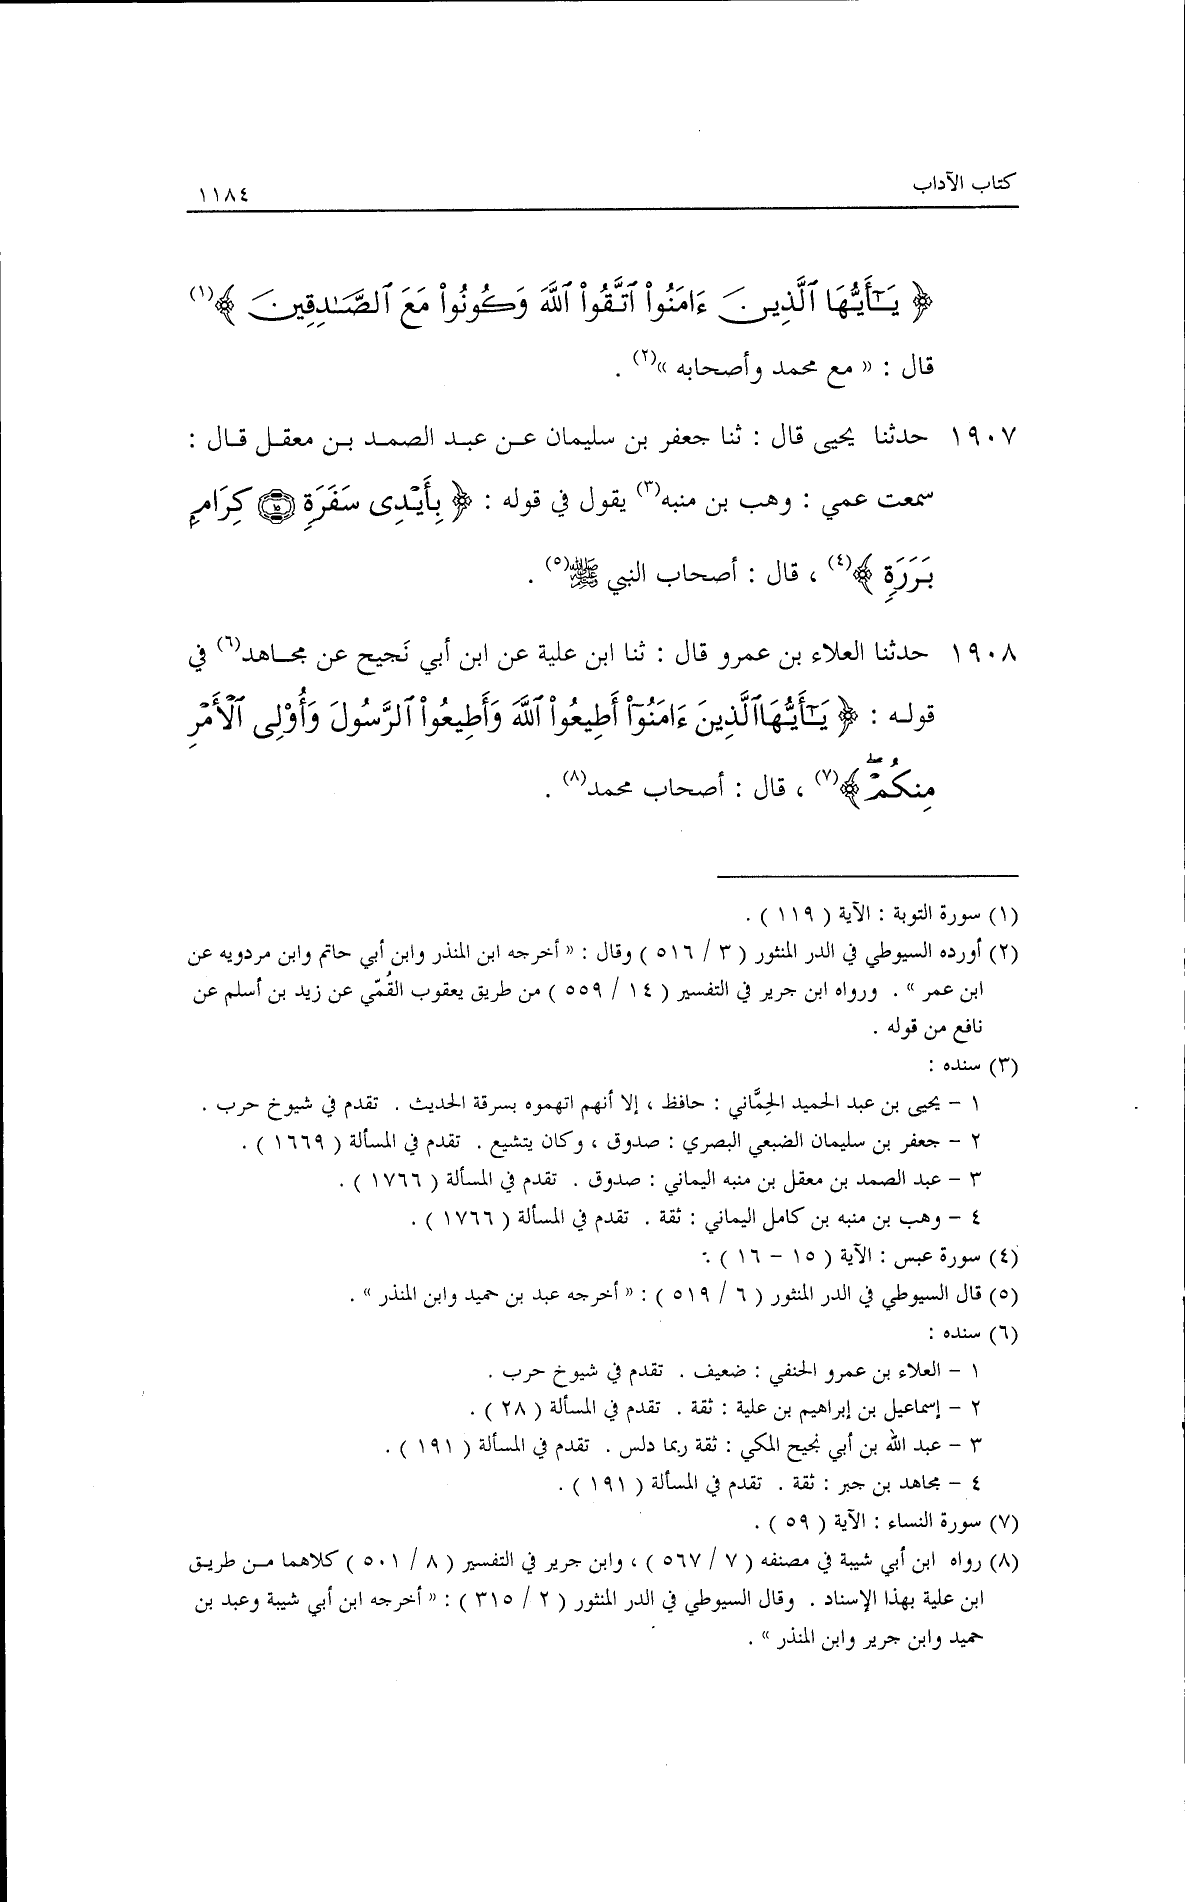 كتاب الآداب
١١٨٤
﴿ يَـٰٓأَيُّهَا ٱلَّذِينَ ءَامَنُوا۟ ٱتَّقُوا۟ ٱللَّهَ وَكُونُوا۟ مَعَ ٱلصَّـٰدِقِينَ ﴾(١)
قال : « مع محمد وأصحابه »(٢) .
١٩٠٧ حدثنا يحيى قال : ثنا جعفر بن سليمان عن عبد الصمد بن معقل قال :
سمعت عمي : وهب بن منبه(٣) يقول في قوله : ﴿ بِأَيْدِى سَفَرَةٍ ۝١٥ كِرَامٍ
بَرَرَةٍ ﴾(٤) ، قال : أصحاب النبي ﷺ(٥) .
١٩٠٨ حدثنا العلاء بن عمرو قال : ثنا ابن علية عن ابن أبي نَجيح عن مجاهد(٦) في
قوله : ﴿ يَـٰٓأَيُّهَا ٱلَّذِينَ ءَامَنُوٓا۟ أَطِيعُوا۟ ٱللَّهَ وَأَطِيعُوا۟ ٱلرَّسُولَ وَأُو۟لِى ٱلْأَمْرِ
مِنكُمْ ۖ ﴾(٧) ، قال : أصحاب محمد(٨) .
(١) سورة التوبة : الآية ( ١١٩ ) .
(٢) أورده السيوطي في الدر المنثور ( ٣ / ٥١٦ ) وقال : « أخرجه ابن المنذر وابن أبي حاتم وابن مردويه عن
ابن عمر » . ورواه ابن جرير في التفسير ( ١٤ / ٥٥٩ ) من طريق يعقوب القُمّي عن زيد بن أسلم عن
نافع من قوله .
(٣) سنده :
١ – يحيى بن عبد الحميد الحِمَّاني : حافظ ، إلا أنهم اتهموه بسرقة الحديث . تقدم في شيوخ حرب .
٢ – جعفر بن سليمان الضبعي البصري : صدوق ، وكان يتشيع . تقدم في المسألة ( ١٦٦٩ ) .
٣ – عبد الصمد بن معقل بن منبه اليماني : صدوق . تقدم في المسألة ( ١٧٦٦ ) .
٤ – وهب بن منبه بن كامل اليماني : ثقة . تقدم في المسألة ( ١٧٦٦ ) .
(٤) سورة عبس : الآية ( ١٥ – ١٦ ) .
(٥) قال السيوطي في الدر المنثور ( ٦ / ٥١٩ ) : « أخرجه عبد بن حميد وابن المنذر » .
(٦) سنده :
١ – العلاء بن عمرو الحنفي : ضعيف . تقدم في شيوخ حرب .
٢ – إسماعيل بن إبراهيم بن علية : ثقة . تقدم في المسألة ( ٢٨ ) .
٣ – عبد الله بن أبي نجيح المكي : ثقة ربما دلس . تقدم في المسألة ( ١٩١ ) .
٤ – مجاهد بن جبر : ثقة . تقدم في المسألة ( ١٩١ ) .
(٧) سورة النساء : الآية ( ٥٩ ) .
(٨) رواه ابن أبي شيبة في مصنفه ( ٧ / ٥٦٧ ) ، وابن جرير في التفسير ( ٨ / ٥٠١ ) كلاهما من طريق
ابن علية بهذا الإسناد . وقال السيوطي في الدر المنثور ( ٢ / ٣١٥ ) : « أخرجه ابن أبي شيبة وعبد بن
حميد وابن جرير وابن المنذر » .